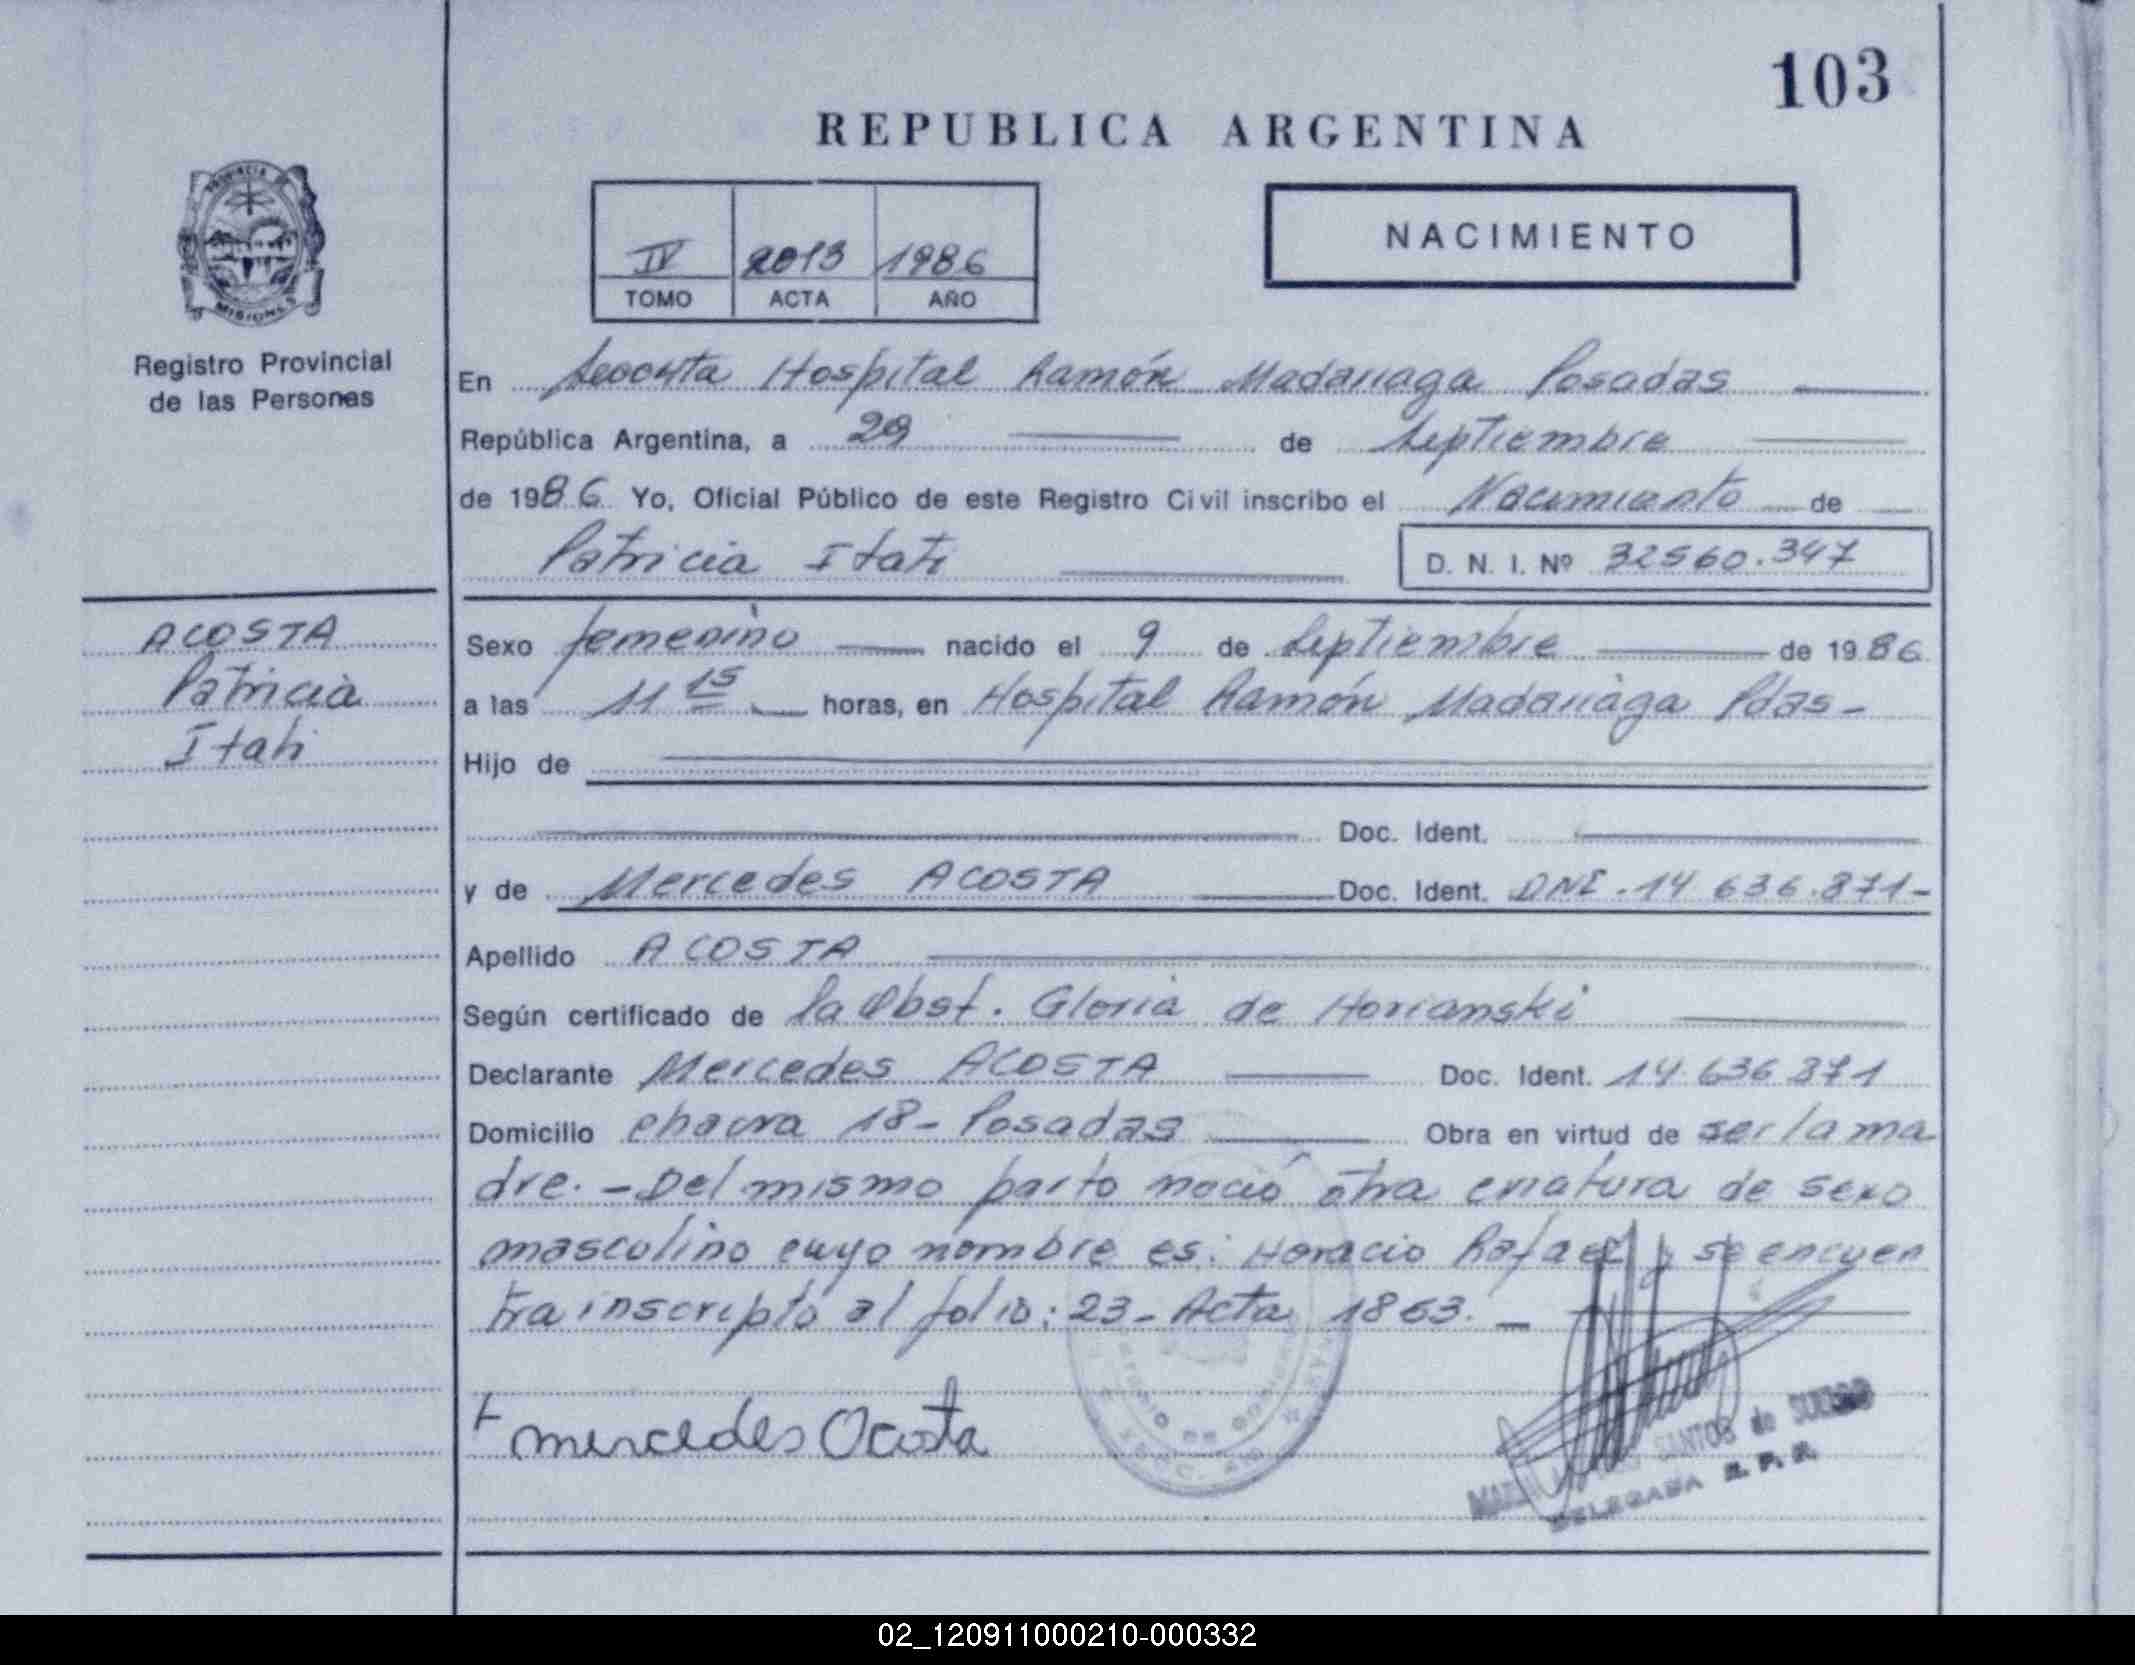 103
REPUBLICA ARGENTINA
PROVINCIA
MISIONES
Registro Provincial
de las Personas
IV 2013 1986
TOMO ACTA AÑO
NACIMIENTO
En Hospital Ramón Madariaga Posadas
República Argentina, a 29 de Septiembre
de 1986 Yo, Oficial Público de este Registro Civil inscribo el Nacimiento de
Patricia Itati
D. N. I. Nº 32560.347
ACOSTA
Patricia
Itati
Sexo femenino nacido el 9 de Septiembre de 1986
a las 11 15 horas, en Hospital Ramón Madariaga Pdas-
Hijo de
Doc. Ident.
y de Mercedes ACOSTA Doc. Ident. DNI.14 636.871-
Apellido ACOSTA
Según certificado de la Obst. Gloria de Horianski
Declarante Mercedes ACOSTA Doc. Ident. 14.636 871
Domicilio chacra 18- Posadas Obra en virtud de ser la ma
dre. - Del mismo parto nació otra criatura de sexo
masculino cuyo nombre es: Horacio Rafael y se encuen
tra inscripto al folio: 23- Acta 1863.-
+ mercedes Acosta
SANTOS de
DELEGADA R. P. P.
02_120911000210-000332